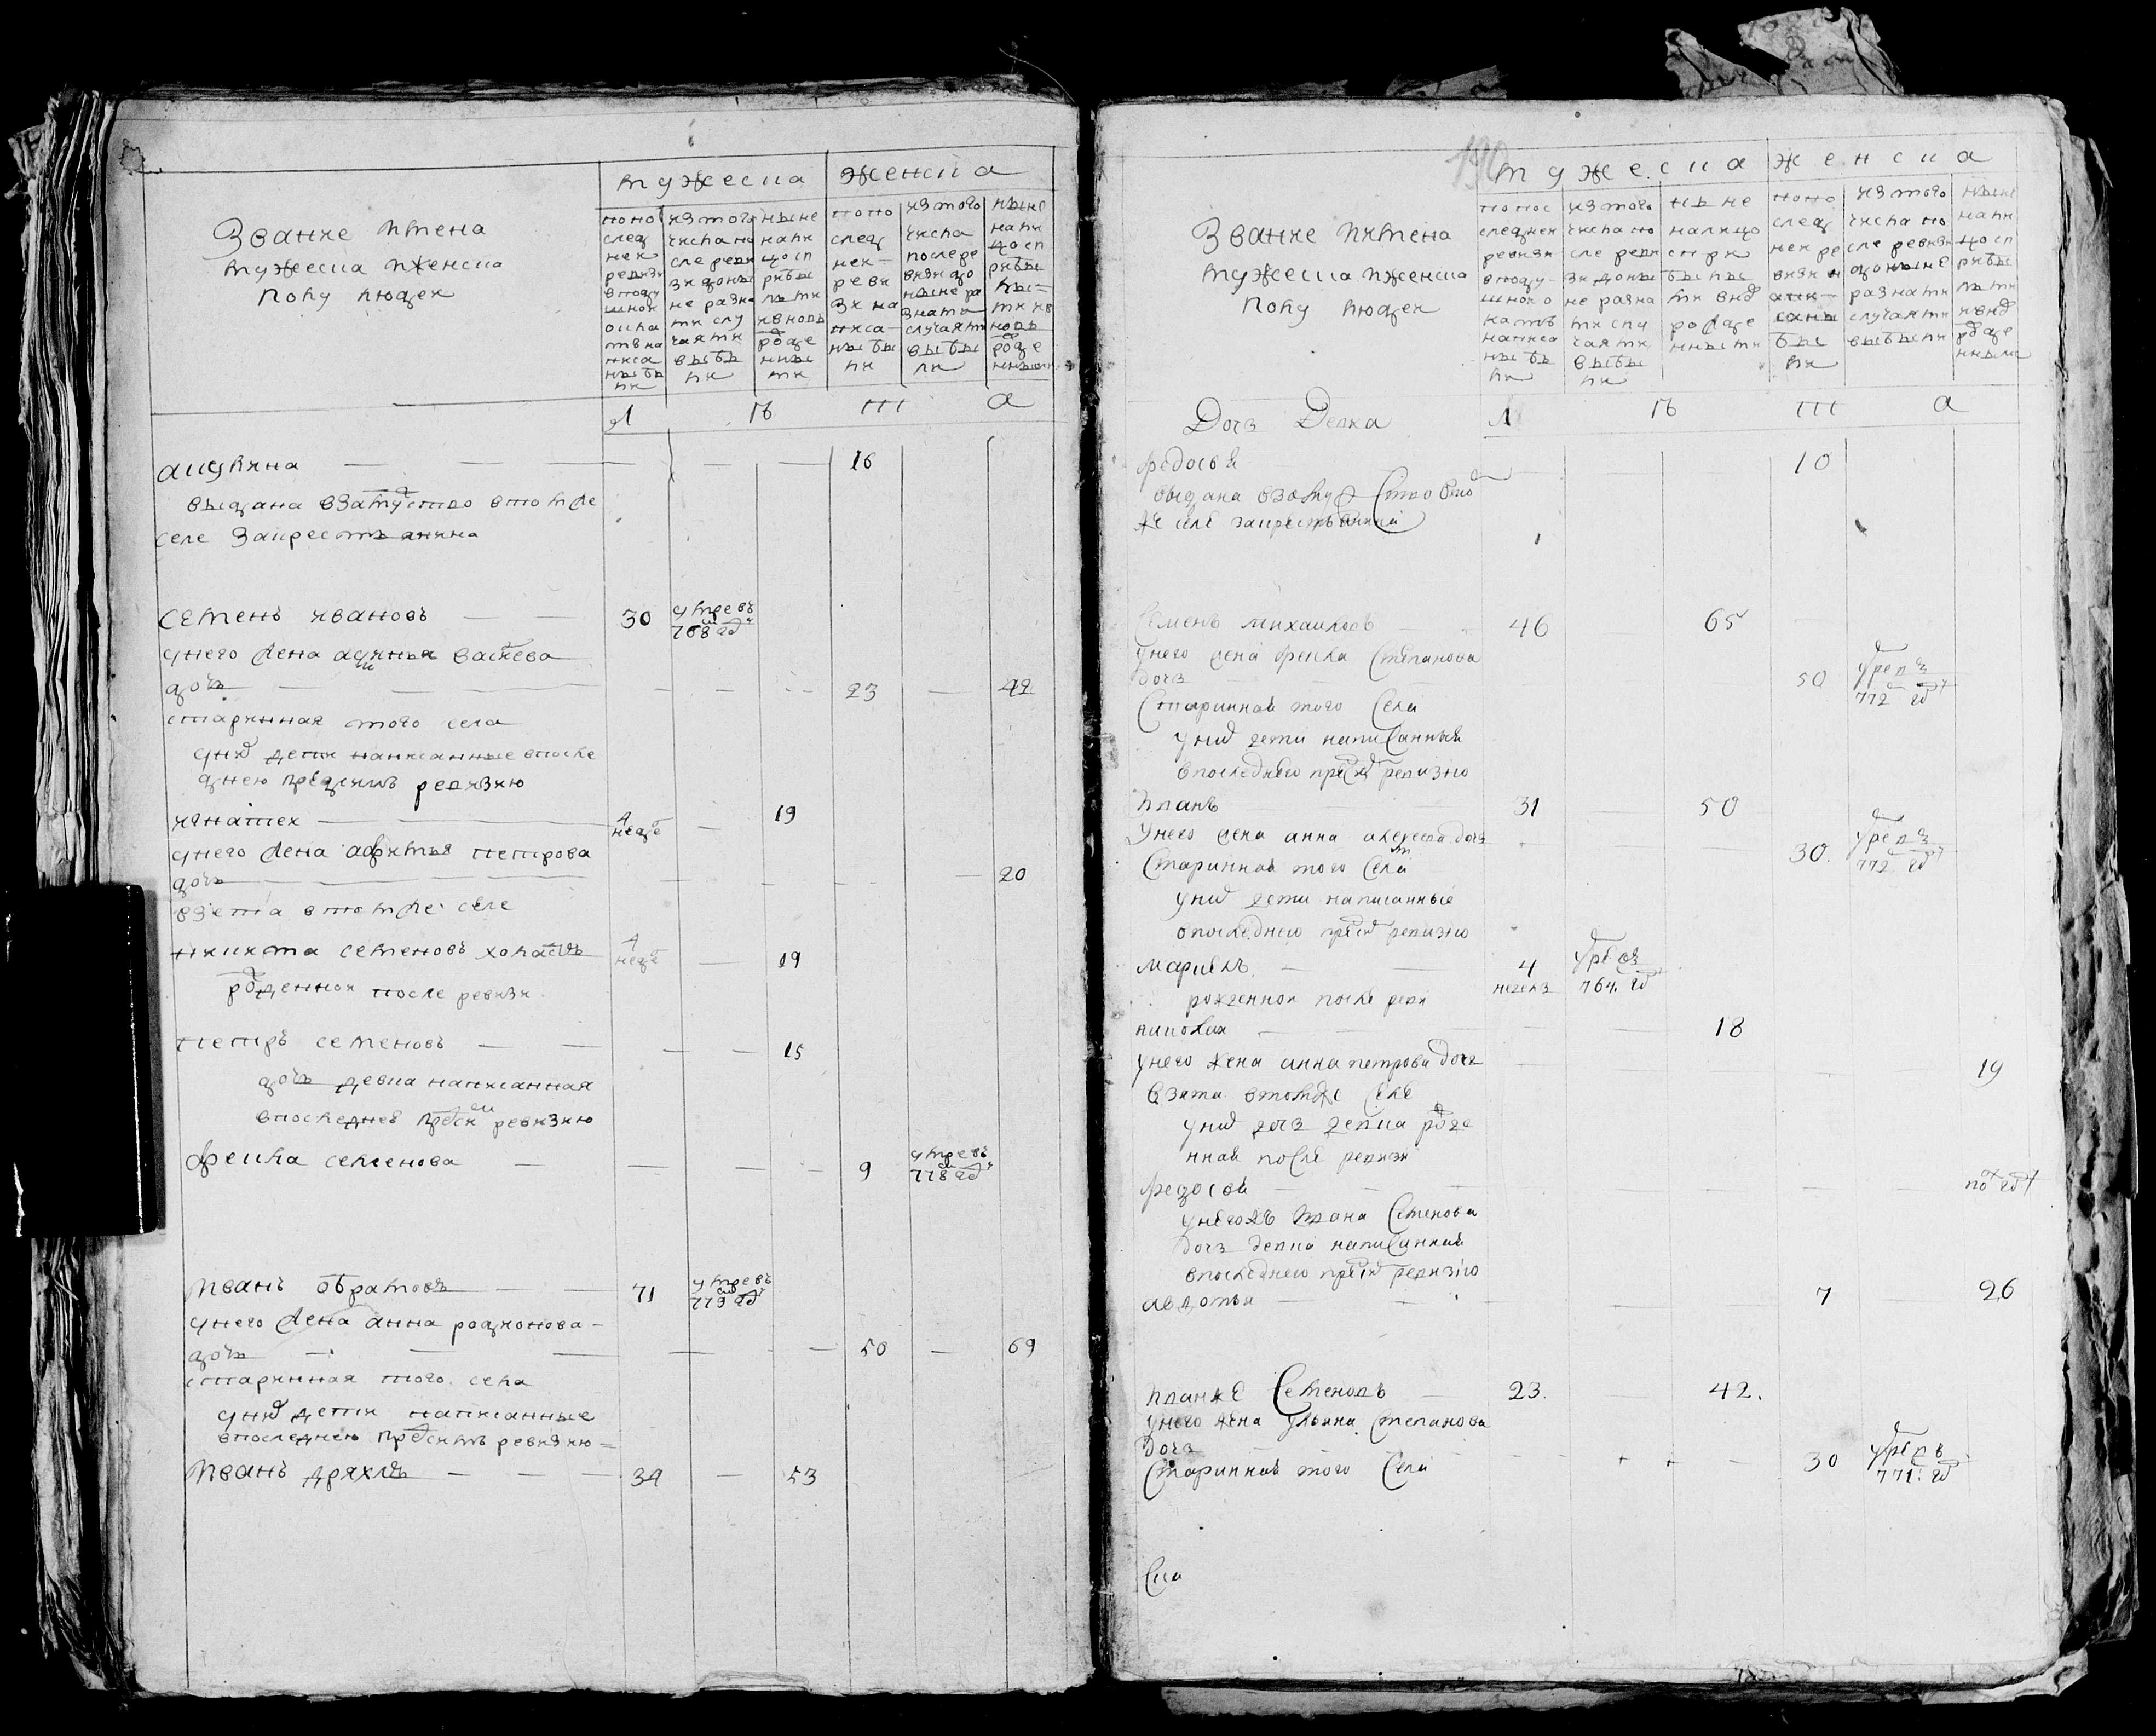 Звание имена
мужеска и женска
полу людей
мужеска
женска
по по
след
ней
ревиз
в поду
шном
окла
те на
писа
ны бы
ли
из того
числа по
сле реви
зи до ны
не разны
ми слу
чаями
выбы
ли
ныне
нали
цо сп
рибы
лыми
и вновь
рожде
нны
ми
по по
след
ней
реви
зи на
писа
ны бы
ли
из того
числа
после ре
визи до
ныне ра
зными
случаями
выбы
ли
ныне
нали
цо сп
рибы
лы
ми и в
новь
рожде
нными
л
м
л
д
акулина — — — — — 16
выдана взамужство втомже
селе закрестьянина
семенъ ивановъ — — 30 умре въ
768 год
унего жена аксинья васильева
дочь — — — — 23 — 42
старинная того села
уних дети написанные впосле
днею предсимъ ревизию
игнатей — 4 неде — 19
унего жена афимья петрова
дочь — — — — — 20
взета втомже селе
никита семеновъ холостъ 4 неде — 19
рожденной после ревизи
петръ семеновъ — — — — 15
дочь девка написанная
впоследнею предсим ревизию
фекла семенова — — — — 9 умре въ
778 год
иванъ обрамовъ — — 71 умре въ
779 год
унего жена анна родионова —
дочь — — — — — 50 — 69
старинная того села
уних дети написанные
впоследнею предсимъ ревизию
иванъ дряхлъ — — — 34 — 53
190
Звание имена
мужеска и женска
полу людей
мужеска
женска
по пос
ледней
ревизи
в поду
шном о
кладе
написа
ны бы
ли
из того
числа по
сле реви
зи до ны
не разны
ми слу
чаями
выбы
ли
ны не
налицо
с при
былы
ми вно
рожде
нными
по по
след
ней ре
визи н
апи
саны
бы
ли
из того
числа по
сле ревизи
доныне
разными
случаями
выбыли
ныне
нали
цо сп
рибы
лыми
и вно
рожде
нными
л
м
л
д
Дочь Девка
федосья 10
выдана взамужство втом
же селе закрестьянина
Семенъ михаиловъ — 46 65
унего жена фекла Степанова
дочь — — — 50 умре в
772 год
Старинная того Села
уних дети написанныя
впоследнею предсим ревизию
иванъ 31 50
унего жена анна алексеева дочь 30. умре в
772 год
Старинная того Села
уних дети написанные
впоследнею предсим ревизию
4 недель умре въ
764. год
рожденной после реви
18
унего жена анна петрова дочь 19
взята втомже Селе
уних дочь девка рожде
нная после ревизи
федосья — — — — пол год
унегожъ ивана Семенова
дочь девка написанная
впоследнею предсим ревизию
авдотья — — 7 26
иванже Семеновъ — 23. 42.
унего жена ульяна Степанова
дочь
Старинная того Села 30 умре в
771. год
Ска